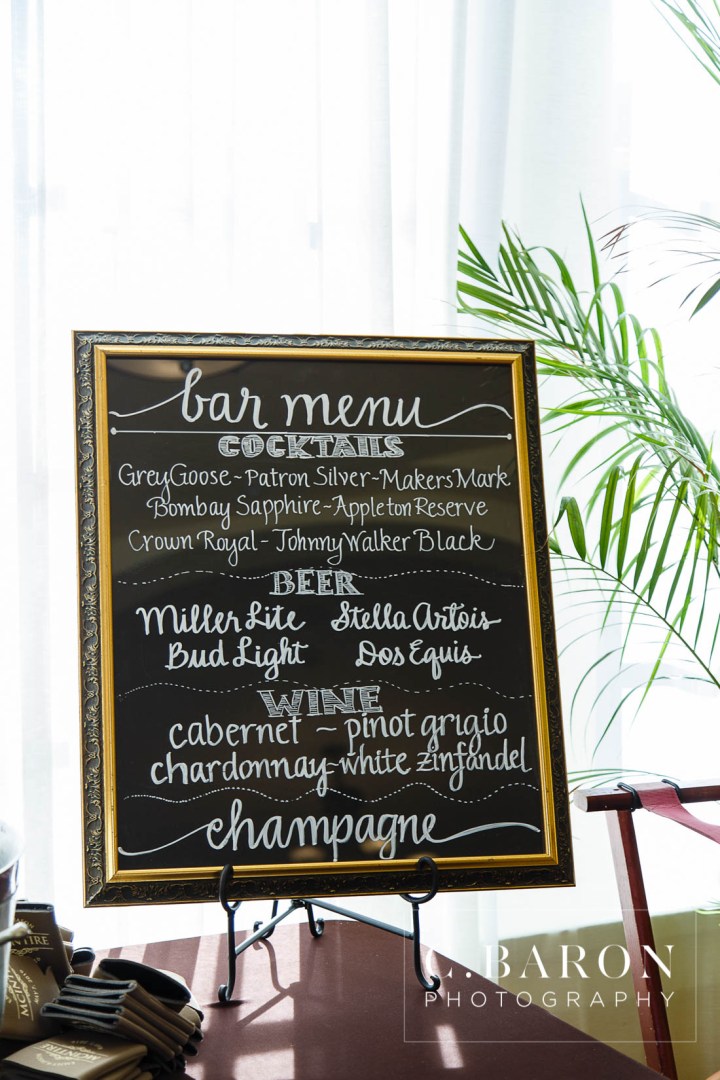 bar menu
COCKTAILS
GreyGoose ~ Patron Silver ~ Makers Mark
Bombay Sapphire ~ Appleton Reserve
Crown Royal ~ Johnny Walker Black
BEER
Miller Lite Stella Artois
Bud Light Dos Equis
WINE
cabernet ~ pinot grigio
chardonnay ~ white zinfandel
champagne
C. BARON
PHOTOGRAPHY